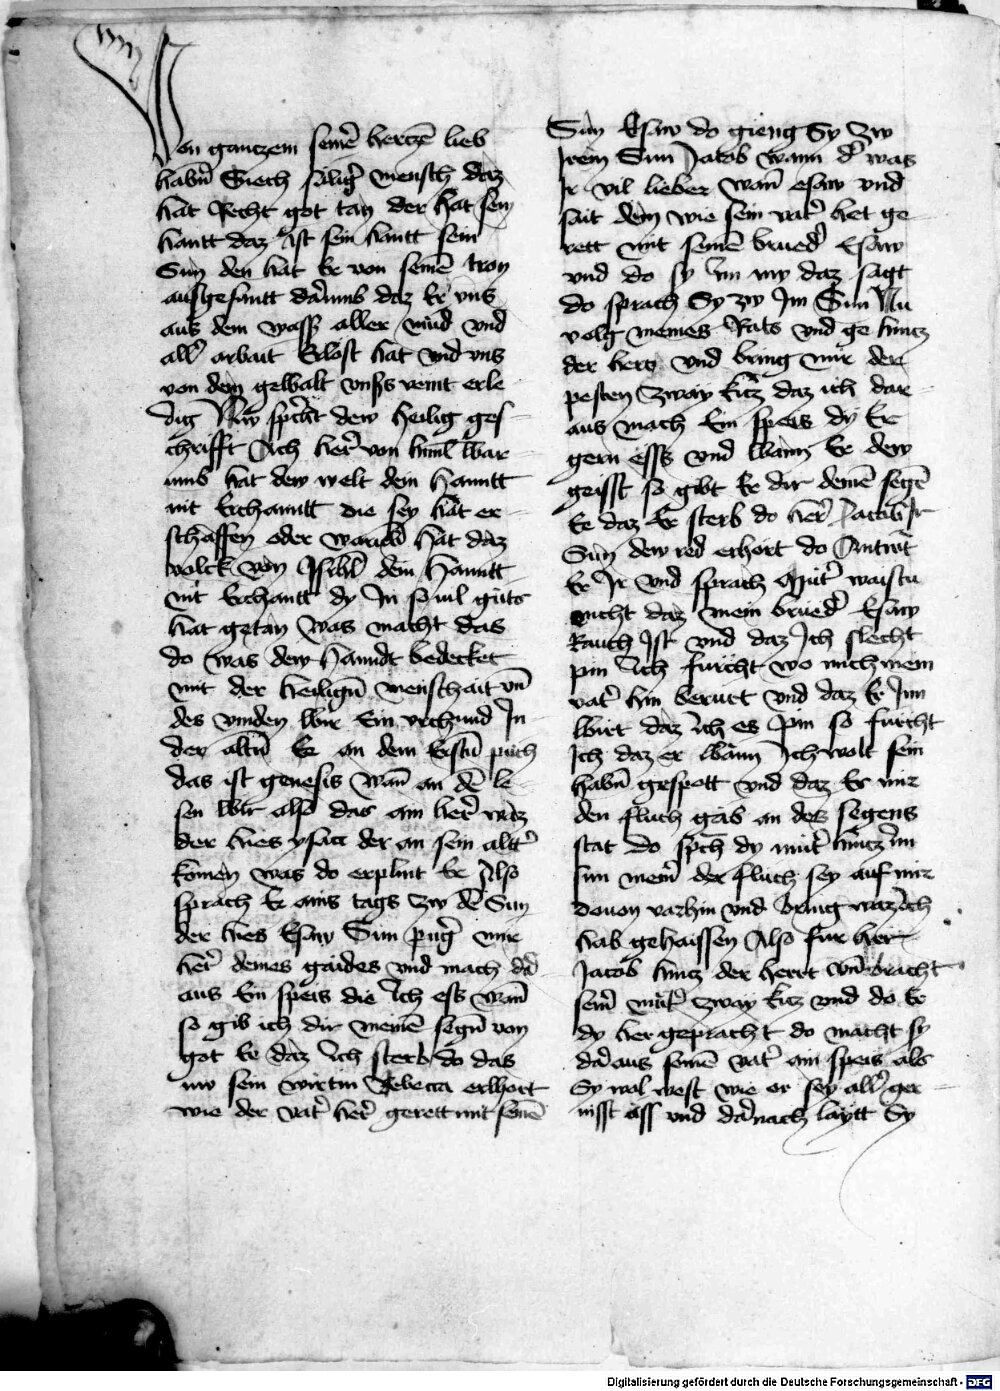 Von ganczem seinē herczē lieb
habn̄ Siech säliger mensch daz
hat Recht got tan der hat sein
hantt daz ist sein hantt sein
Sun den hat Er von seinē tron
ausgesantt darumb daz Er vns
aus dem wasser aller müd vnd
aller arbait Erlöst hat vnd vns
von dem gewalt vnsers veint erle
digt Nw spricht dew heilig ges
chrifft Ach herr von himl war
umb hat dew welt dein Hanntt
nit Erchanntt die sey hat er
schaffen oder warumb hat daz
volck von Israhel dein Hanntt
nit Erchantt dy In souil güts
hat getan was macht das
do was dew Hanndt bedecket
mit der heilign̄ menschait vn̄
des vinden wir Ein vrchund In
der altn̄ Ee an dem Erstn̄ puch
das ist genesis wan̄ an dē le
sen wir also das ain herr waz
der hies ysaac der an sein alter
komen was do erplint Er Also
sprach Er ains tags zw dē Sun
der hies Esaw Sun pring mir
her deines gaides vnd mach dar
aus Ein speis die Ich ess wan̄
so gib ich dir meinē segn̄ von
got Ee daz Ich sterb do das
nw sein wirtin Rebecca erhort
wie der vater het gerett mit seinē
Sun Esaw do gieng Sy zw
Irem Sun Jacob wann der was
Ir vil lieber wan̄ esaw vnd
sait dem wie sein vater het ge
rett mit seinē brueder Esaw
vnd do sy Im nw daz sagt
do sprach Sy zw Im Sun Nu
volg meines Rats vnd ge hincz
der hert vnd bring mir der
pesten zway kicz daz ich dar
aus mach Ein speis dy Er
gern isst vnd wann Er dew
geisst so gibt Er dir deinē segē
Ee daz Er sterb do her Jacob Ir
Sun dew red erhort do Antwurt
Er Ir vnd sprach Muter waistu
nicht daz mein brueder Esaw
Rauch Ist vnd daz Ich slecht
pin Ich furcht wo mich mein
vater hin berurt vnd daz Er Inn
wirt daz ich es pin so furcht
Ich daz er wänn Ich wolt sein
habn̄ gespott vnd daz Er mir
den fluch gäb an des segens
stat do sprach dy muter hincz irm
sun mein der fluch sey auf mir
dauon varhin vnd bring waz ich
hab gehaissen Also fur her
Jacob hincz der hertt vnd bracht
seiner muter zway kicz vnd do Er
dy her gepracht do macht sy
daraus seinē vater ain speis als
Sy wol west wie er sey aller ger
nisst äss vnd darnach laytt Sy